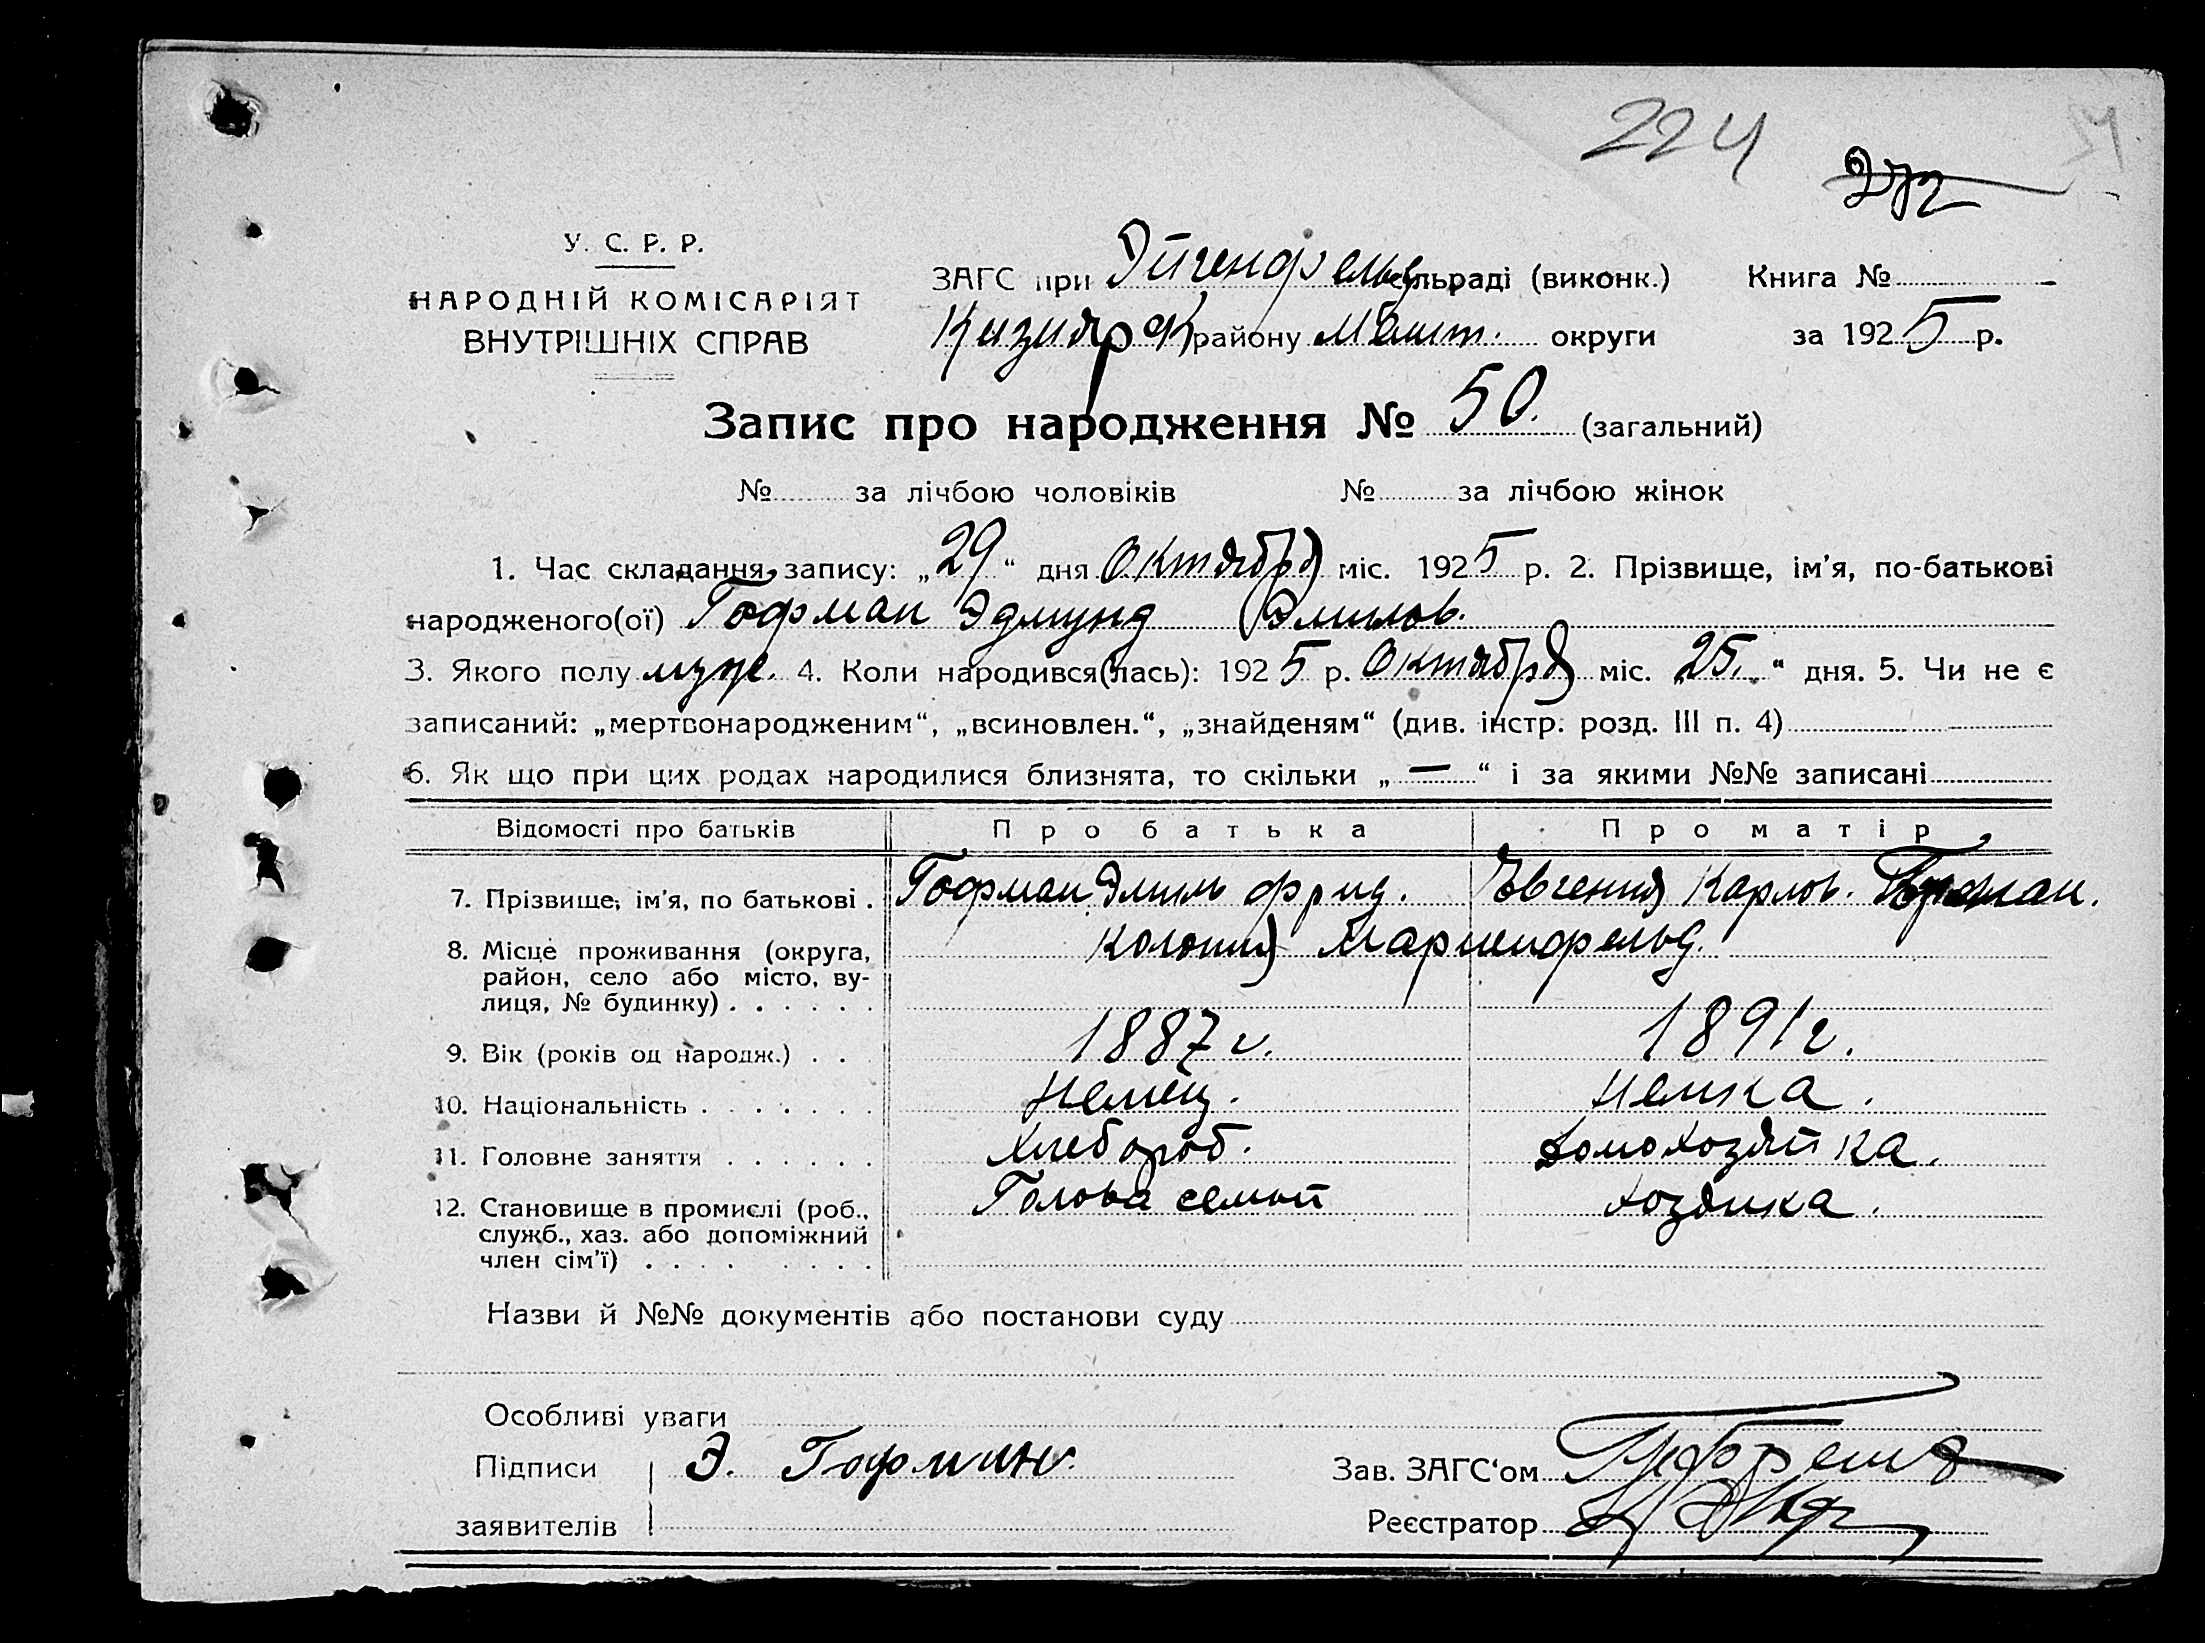 224
272
У. С. Р. Р.
НАРОДНІЙ КОМІСАРІЯТ
ВНУТРІШНІХ СПРАВ
ЗАГС при Эйгенфельд сільраді (виконк.) Книга №
Кизиярск району Мелит. округи за 1925 р.
Запис про народження № 50. (загальний)
№ за лічбою чоловіків № за лічбою жінок
1. Час складання запису: „29“ дня Октября міс. 1925 р. 2. Прізвище, ім’я, по-батькові
народженого(ої) Гофман Эдмунд Эмилов.
3. Якого полу муж. 4. Коли народився(лась): 1925 р. Октября міс. „25.“ дня. 5. Чи не є
записаний: „мертвонародженим“, „всиновлен.“, „знайденям“ (див. інстр. розд. III п. 4)
6. Як що при цих родах народилися близнята, то скільки „—“ і за якими №№ записані
Відомості про батьків Про батька Про матір
7. Прізвище, ім’я, по батькові . Гофман Эмиль Фрид. Евгения Карлов. Гофман.
8. Місце проживання (округа, колония Мариенфельд.
район, село або місто, ву-
лиця, № будинку) . . . . . .
9. Вік (років од народж.) . . 1887 г. 1891 г.
10. Національність . . . . . . Немец. Немка.
11. Головне заняття . . . . . . Хлебороб. Домохозяйка.
12. Становище в промислі (роб., Голова семьи хозяйка.
служб., хаз. або допоміжний
член сім’ї) . . . . . . . .
Назви й №№ документів або постанови суду
Особливі уваги
Підписи Э. Гофман Зав. ЗАГС‘ом
заявителів Реєстратор